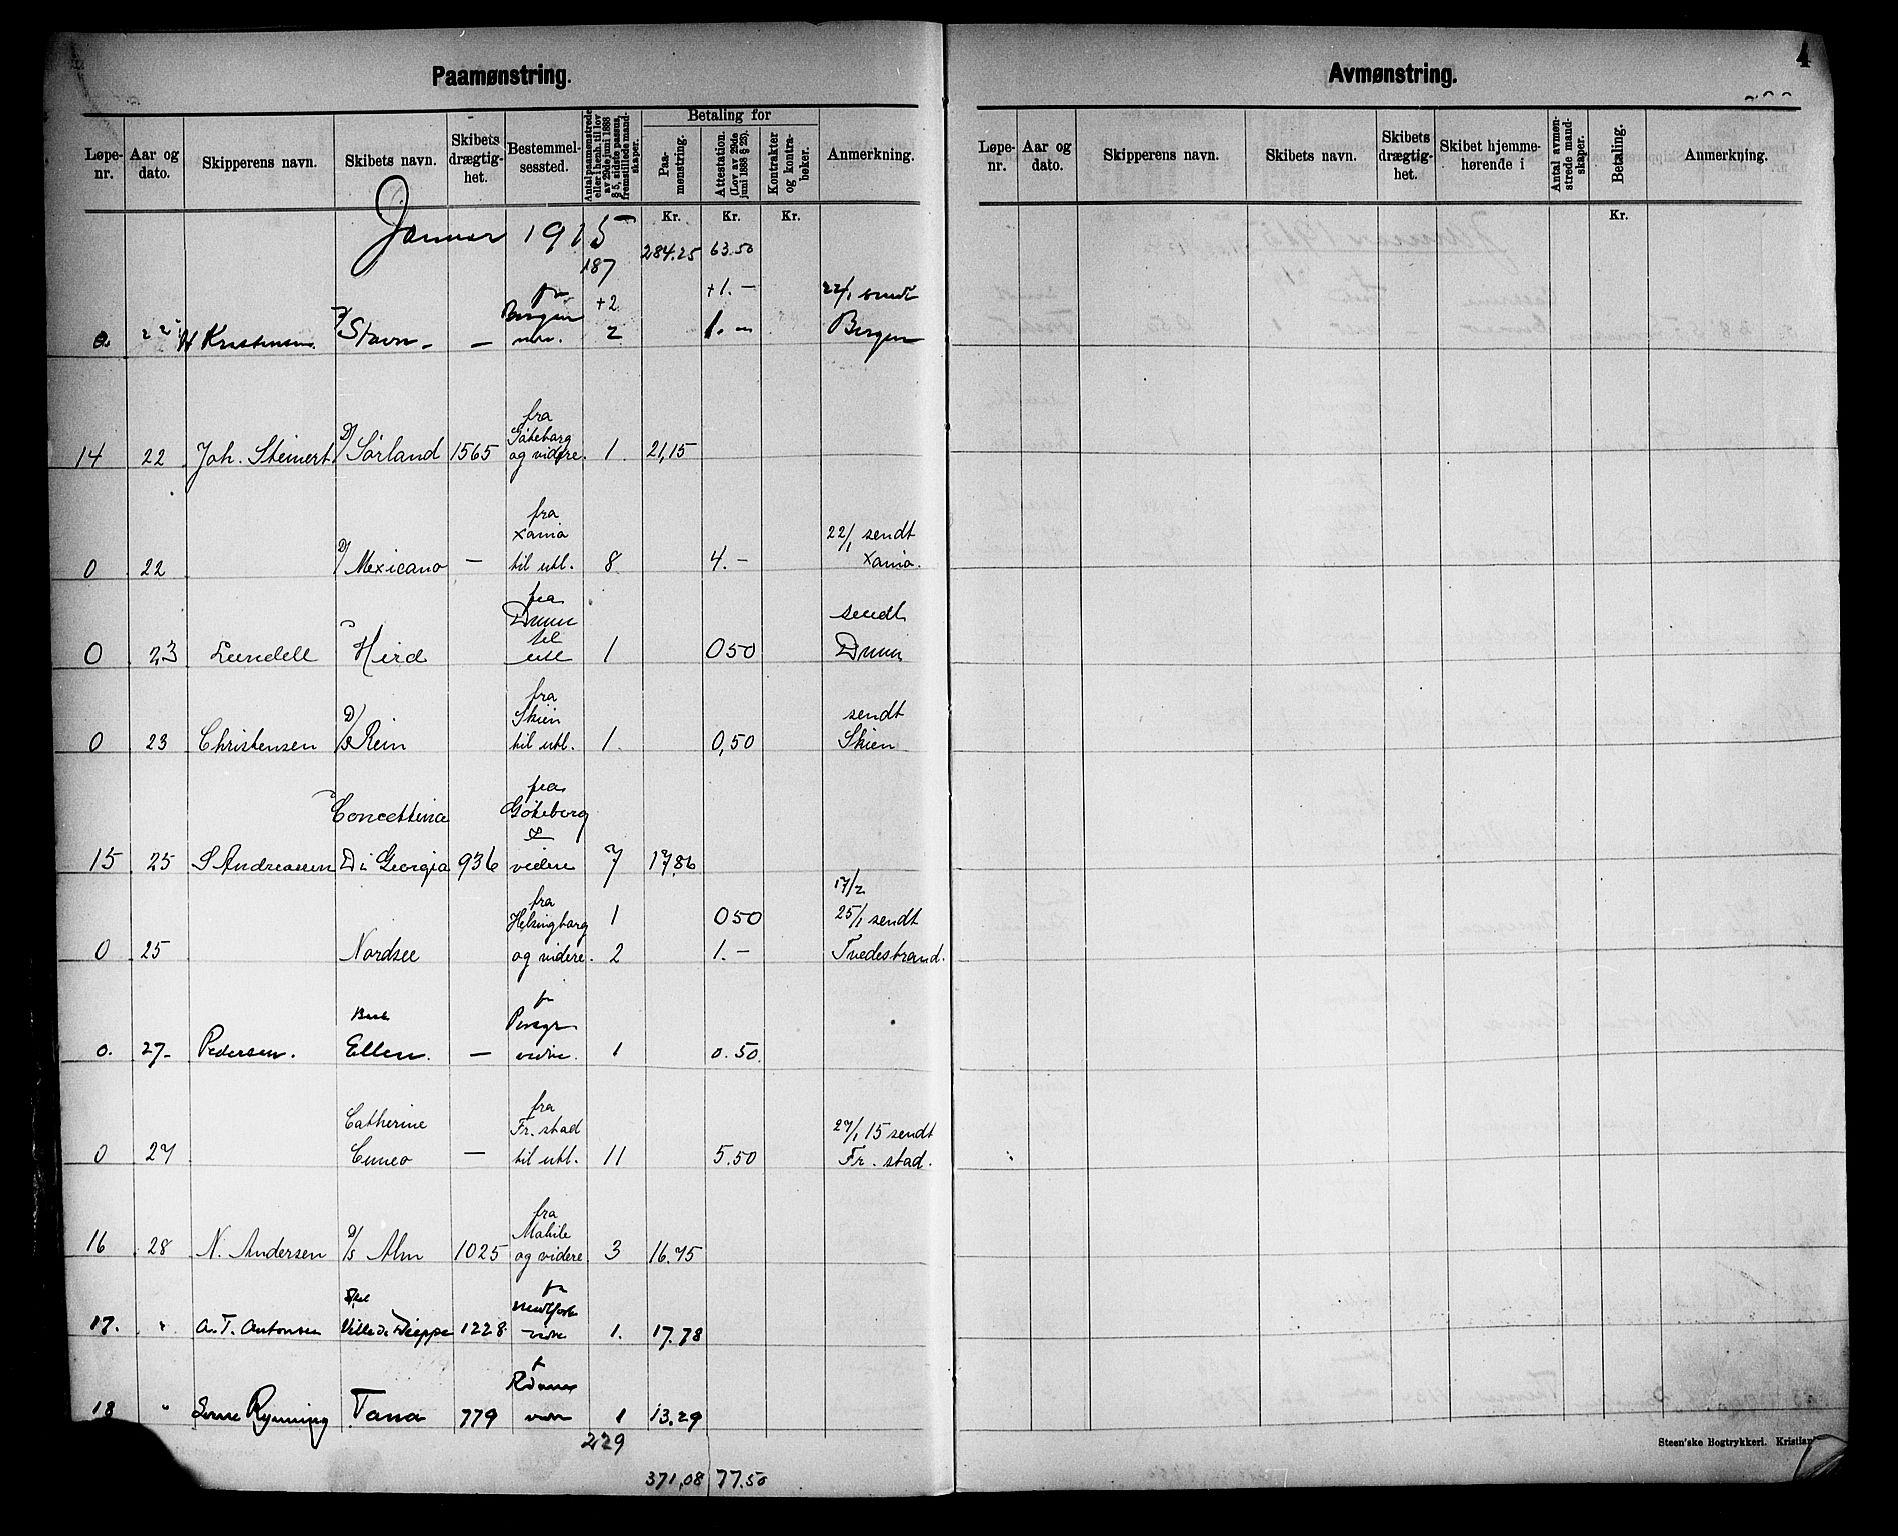 4
Paamønstring.
Løpe-nr. | Aar og dato. | Skipperens navn. | Skibets navn. | Skibets drægtig-het. | Bestemmel-sessted. | Antal paamønstrede eller i henh. til lov av 29de juni 1888 § 5, sidste passus, fremstillede mand-skaper. | Betaling for | Paa-mønstring. | Attestation. (Lov av 29de juni 1888 § 23). | Kontrakter og kontra-bøker. | Anmerkning.
Kr. | Kr. | Kr.
Januar 1915
187 | 284.25 | 63.50
+2 | +1.— | 22/1 sendt
0. | 22 | H Kristensen | D/ Stavn | — | fr Bergen | 2 | 1.— | Bergen
14 | 22 | Joh. Steinert | D/ Sørland | 1565 | fra Göteborg og videre. | 1. | 21,15
0 | 22 | D/ Mexicano | — | fra Xania til utl. | 8 | 4.— | 22/1 sendt Xania.
0 | 23 | Lundell | Hird | fra Dmn til utl | 1 | 050 | sendt Dmn
0 | 23 | Christensen | D/s Rein | fra Skien til utl. | 1. | 0,50 | sendt Skien
15 | 25 | S Andreassen | Concettina Di Georgio | 936 | fra Göteborg & videre | 7 | 17,86
17/2
1 | 050 | 25/1 sendt
0 | 25 | Nordsee | fra Helsingborg og videre. | 2 | 1.— | Tvedestrand.
0. | 27- | Pedersen. | Bark Ellen. | — | fr Porsgr vidre. | 1 | 0.50.
0 | 27 | Catherine Cuneo | — | fra Fr. stad til utl. | 11 | 5.50 | 27/1 15 sendt Fr. stad.
16 | 28 | N. Andersen | D/s Alm | 1025 | fra Mobile og videre. | 3 | 16.75
17. | " | A. T. Antonsen | Ville de Dieppe | 1228 | fr vidre | 1. | 17.78
18 | " | Rynning | Tana | 779 | fr vidre | 1 | 13.29
229
371,08 | 77.50
Avmønstring.
Løpe-nr. | Aar og dato. | Skipperens navn. | Skibets navn. | Skibets drægtig-het. | Skibet hjemme-hørende i | Antal avmøn-strede mand-skaper. | Betaling. | Anmerkning.
Kr.
Steen'ske Bogtrykkeri. Kristian